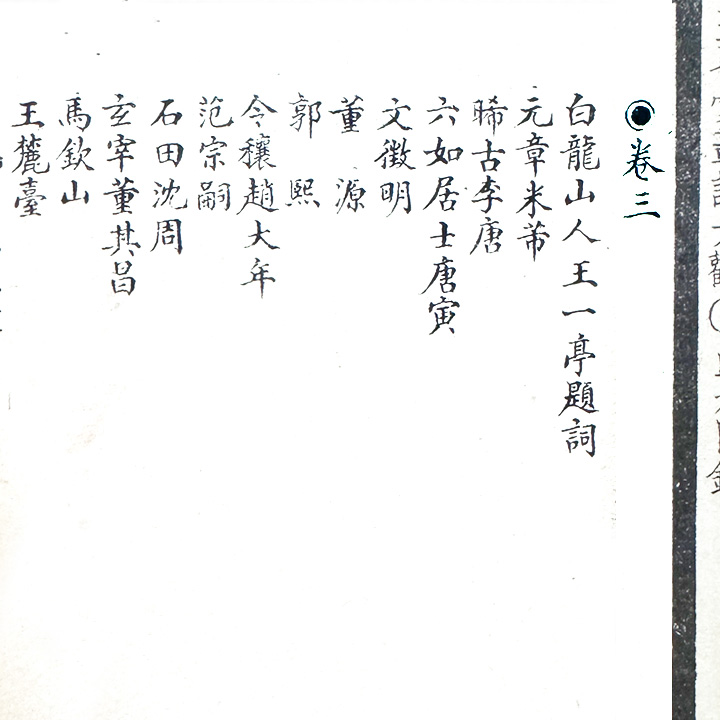 卷三
白龍山人王一亭題詞
元章米芾
晞古李唐
六如居士唐寅
文徵明
董源
郭熙
令穰趙大年
范宗嗣
石田沈周
玄宰董其昌
馬欽山
王麓臺